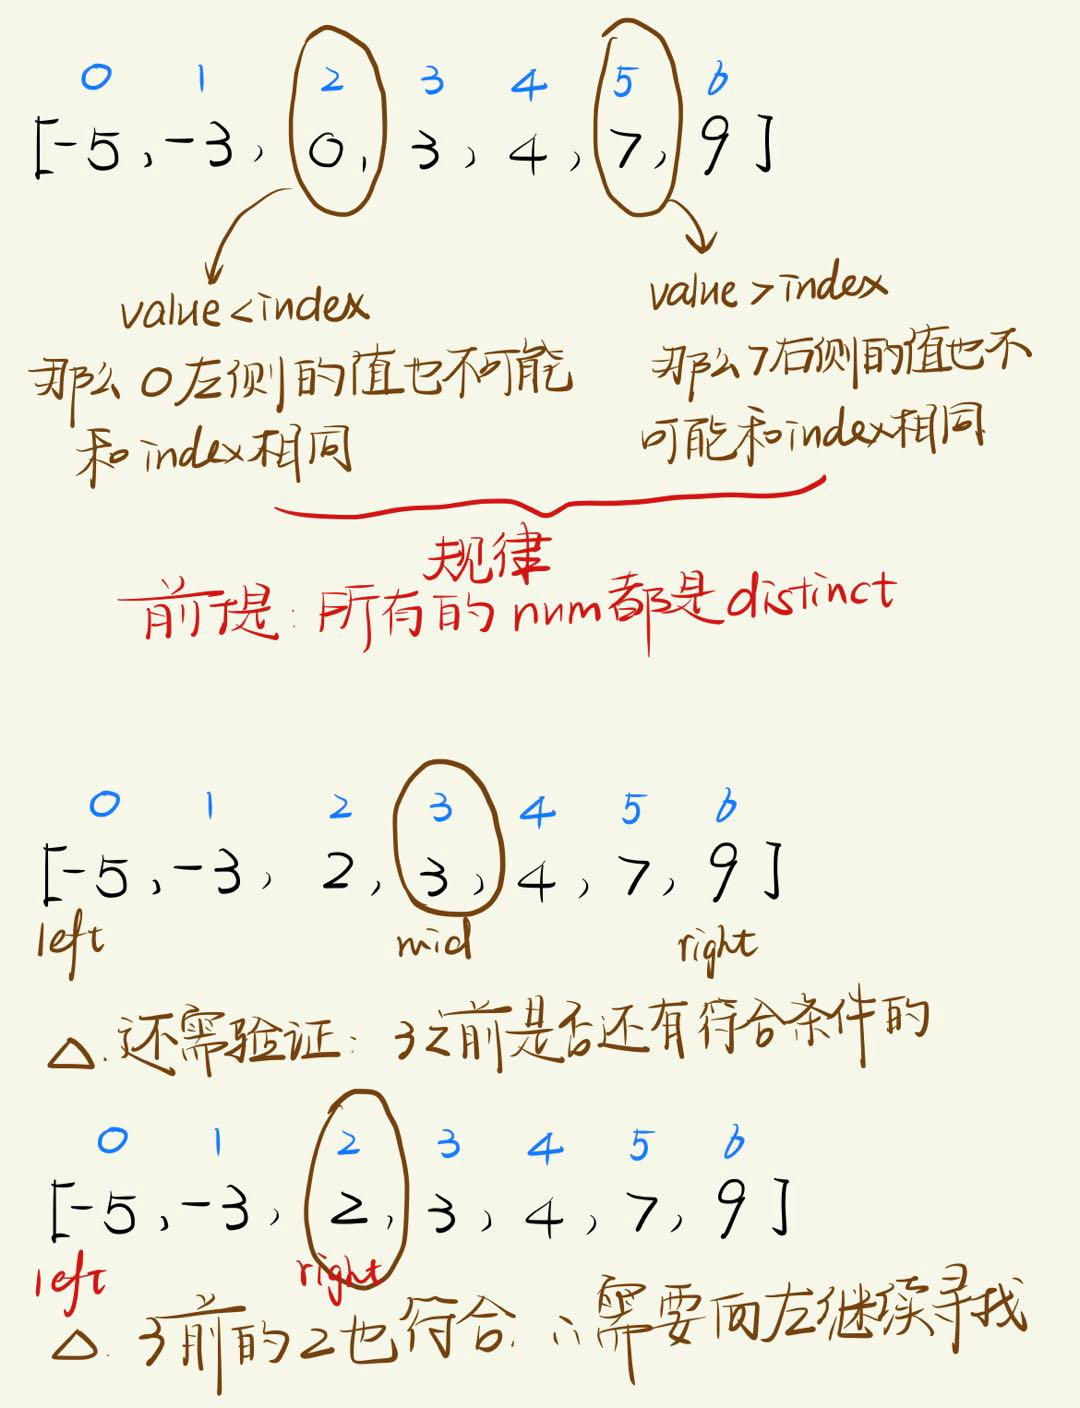 0 1 2 3 4 5 6
[-5, -3, 0, 3, 4, 7, 9]
value < index
那么0左侧的值也不可能
和index相同
value > index
那么7右侧的值也不
可能和index相同
规律
前提: 所有的num都是distinct
0 1 2 3 4 5 6
[-5, -3, 2, 3, 4, 7, 9]
left mid right
△. 还需验证: 3之前是否还有符合条件的
0 1 2 3 4 5 6
[-5, -3, 2, 3, 4, 7, 9]
left right
△. 3前的2也符合. ∴需要向左继续寻找